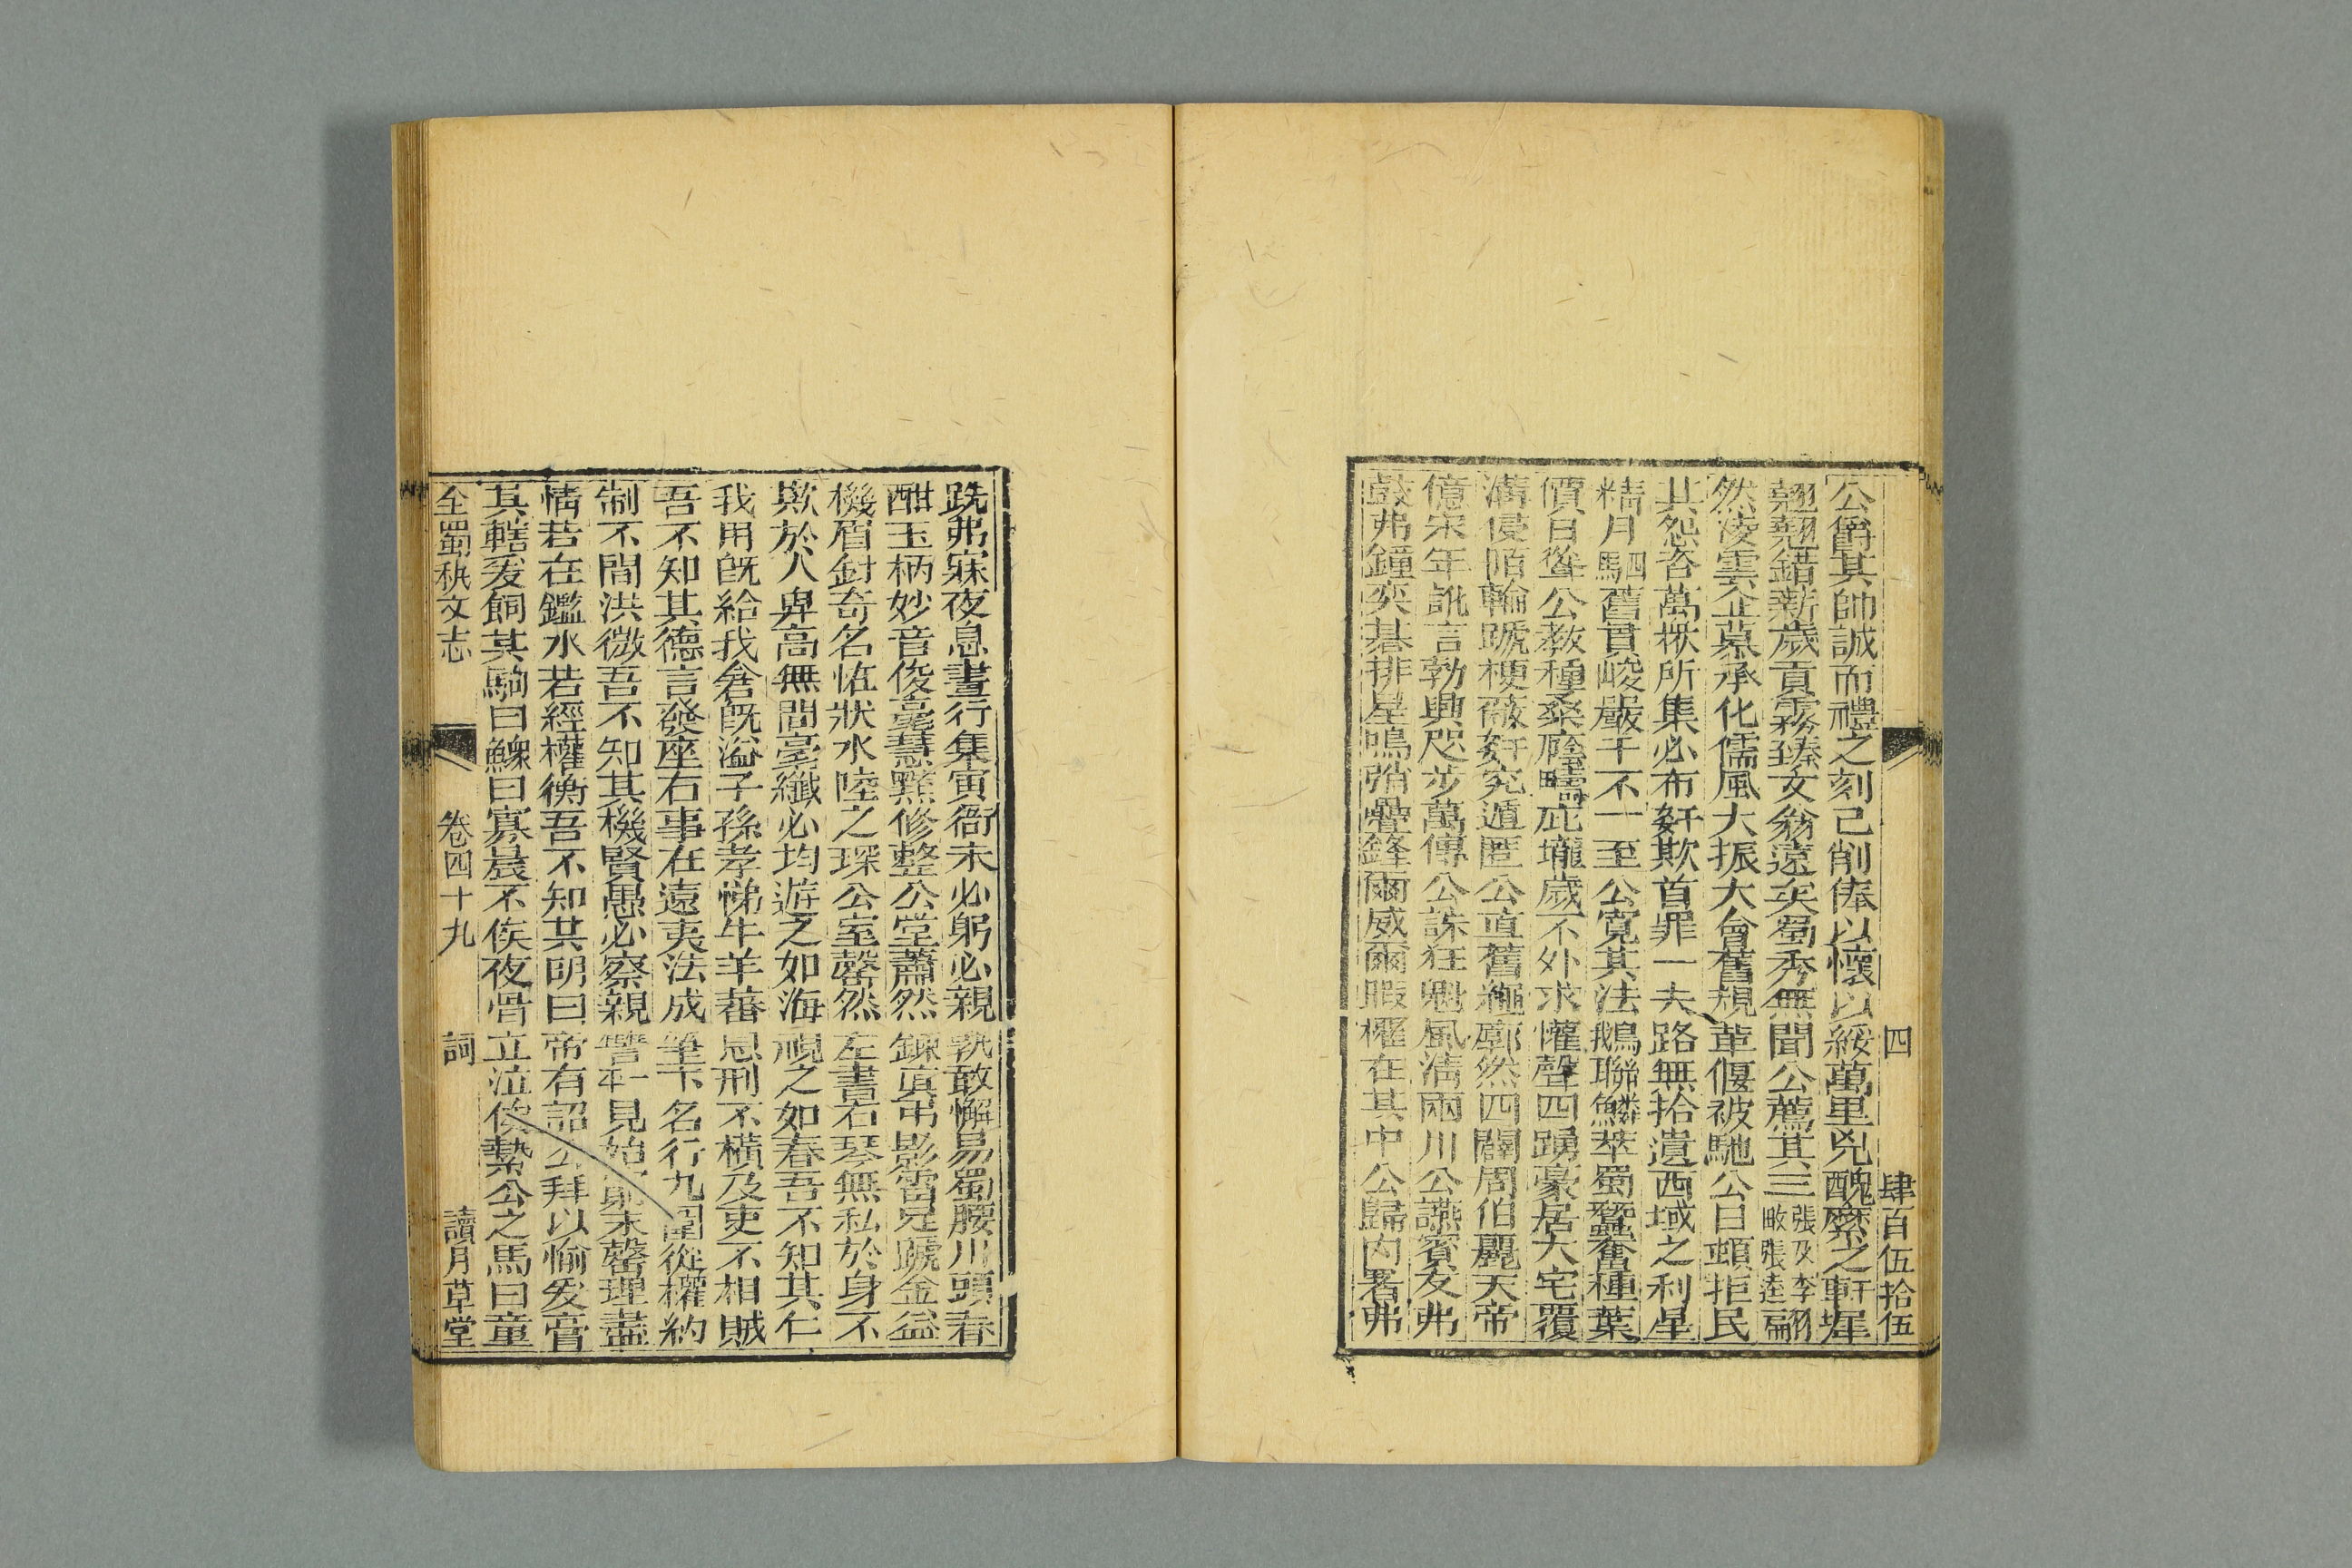 四　肆百伍拾伍
公爵其帥誠而禮之刻己削俸以懷以綏萬里兇醜縻之軒墀
翹翹錯薪歲貢霧臻文翁遠矣蜀秀無聞公薦其三張及李翮畋張逵
然凌雲企慕承化儒風大振大會舊規葷偃被馳公曰頔拒民
其怨咨萬柣所集必布奸欺首罪一夫路無拾遺西域之利星
精月駟舊貫峻嚴千不一至公寬其法鵝聯鱗萃蜀蠶奮種葉
價日聳公教種桑廕疇庇壠歲不外求懽聲四踴豪居大宅覆
溝侵陌輪蹏梗蔽奸宄遁匿公直舊繩廓然四闢周伯麗天帝
億宋年訛言勃興咫步萬傳公誅狂魁風淸兩川公讌賓友弗
鼓弗鐘奕棊排星鳴弰疊鋒爾威爾暇權在其中公歸內署弗
跣弗寐夜息晝行集寅衙未必躬必親孰敢懈易蜀腰川頭春
酣玉柄妙音俊毫慧黠修整公堂蕭然鍊眞弔影雷足蹏金盆
機眉針奇名恠狀水陸之琛公室罄然左書右琴無私於身不
欺於人卑高無間毫纖必均遊之如海視之如春吾不知其仁
我用旣給我倉旣溢子孫孝悌牛羊蕃息刑不橫及吏不相賊
吾不知其德言發座右事在遠夷法成筆下名行九圍從權約
制不間洪微吾不知其機賢愚必察親讐一見始末罄理盡
情若在鑑水若經權衡吾不知其明曰帝有詔公拜以愉爰膏
其轄爰飼其駒曰鰥曰寡晨不俟夜骨立泣俟縶公之馬曰童
全蜀秇文志　卷四十九　詞　讀月草堂